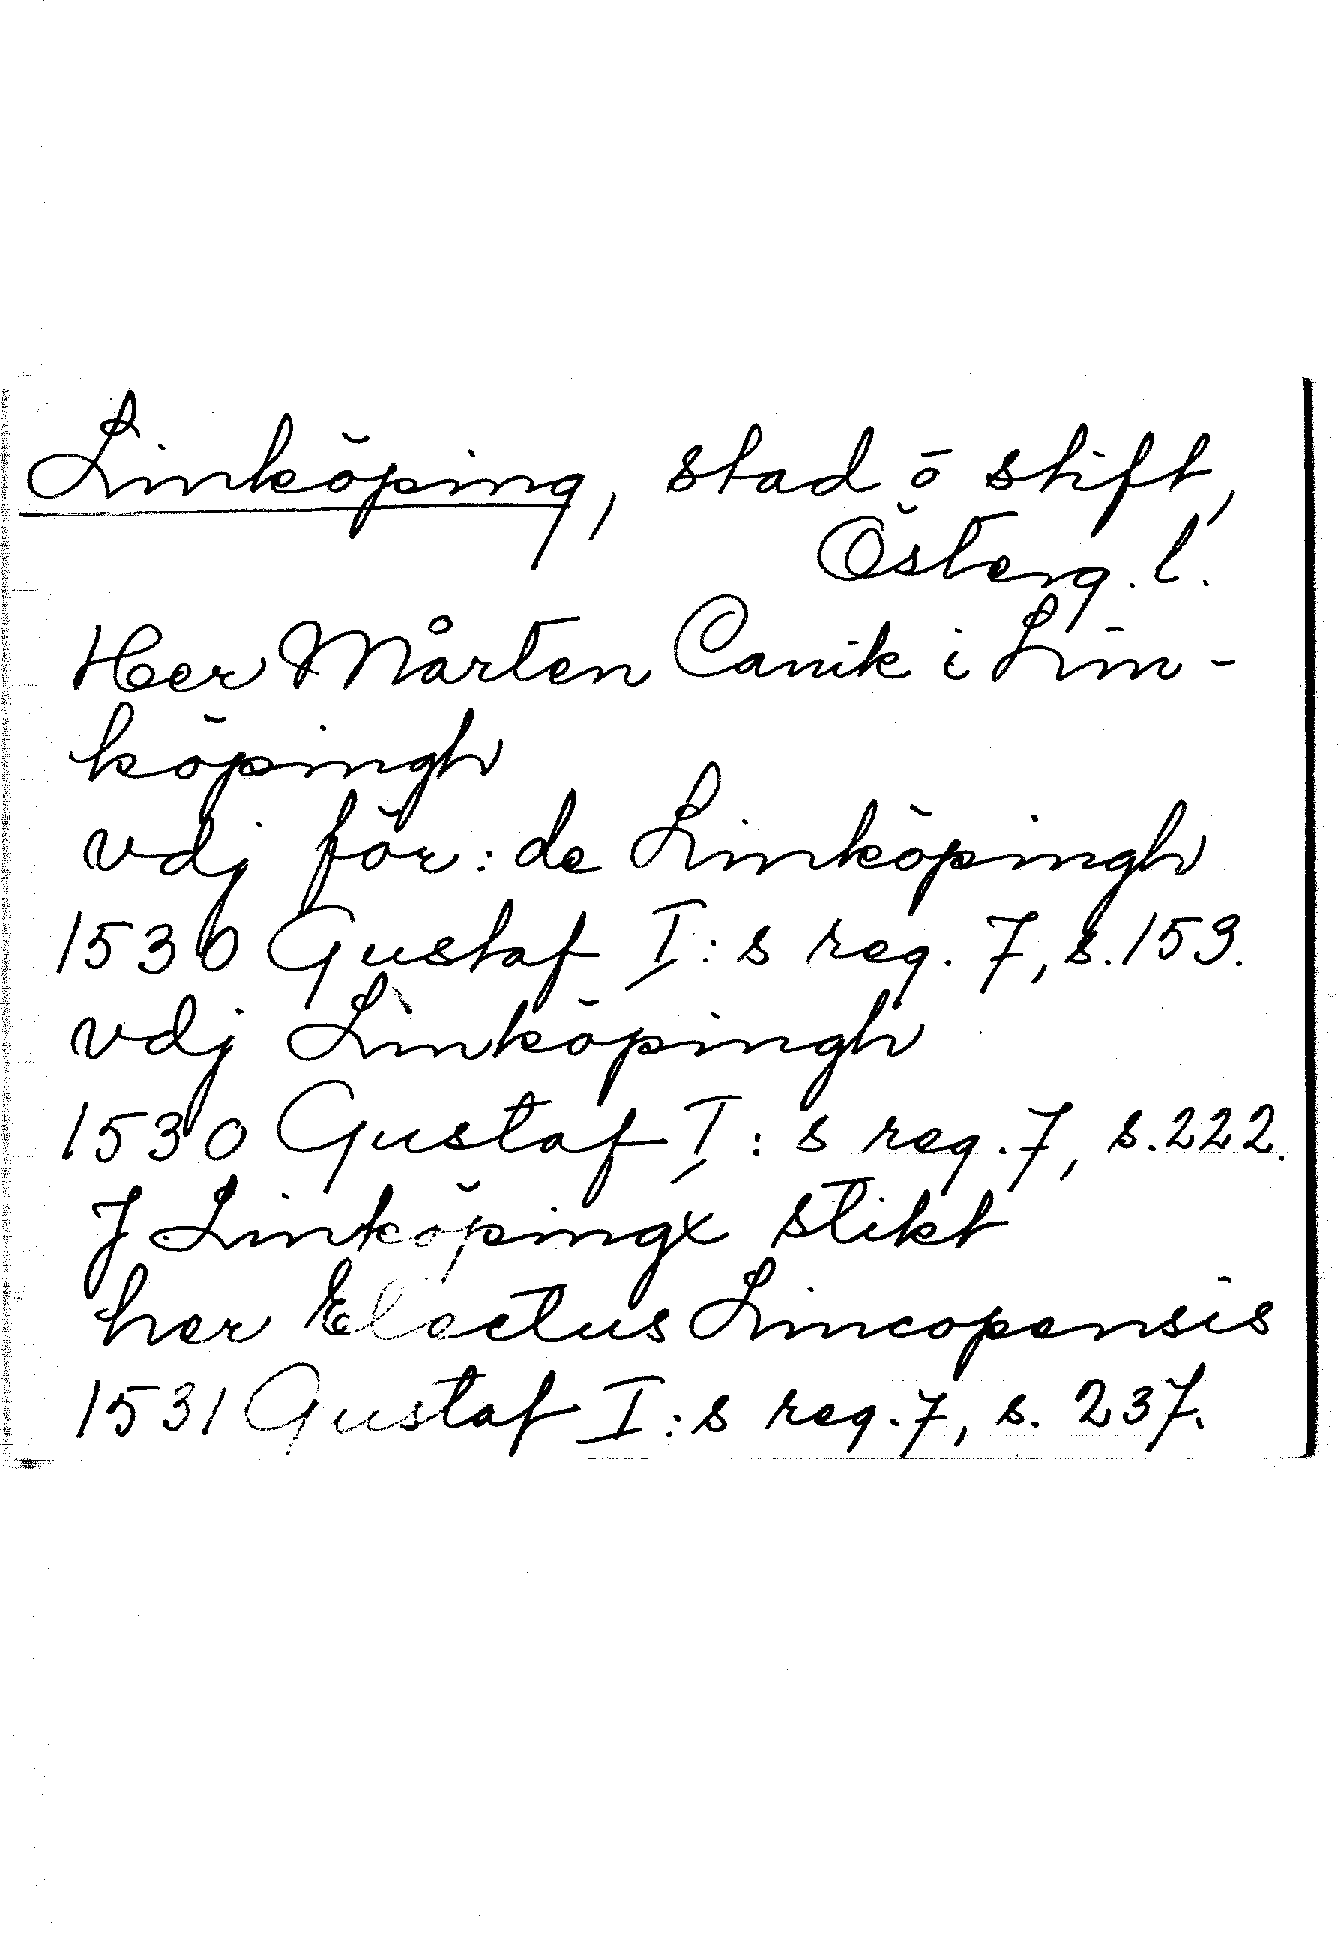 Linköping, stad o stift,
Österg. l.
Her Mårten Canik i Lin-
köpingh
vdj för: de Linköpingh
1530 Gustaf I:s reg. 7, s. 153.
vdj Linköpingh
1530 Gustaf I:s reg. 7, s. 222.
J Linköpingx stikt
her Electus Lincopensis
1531 Gustaf I:s reg. 7, s. 237.